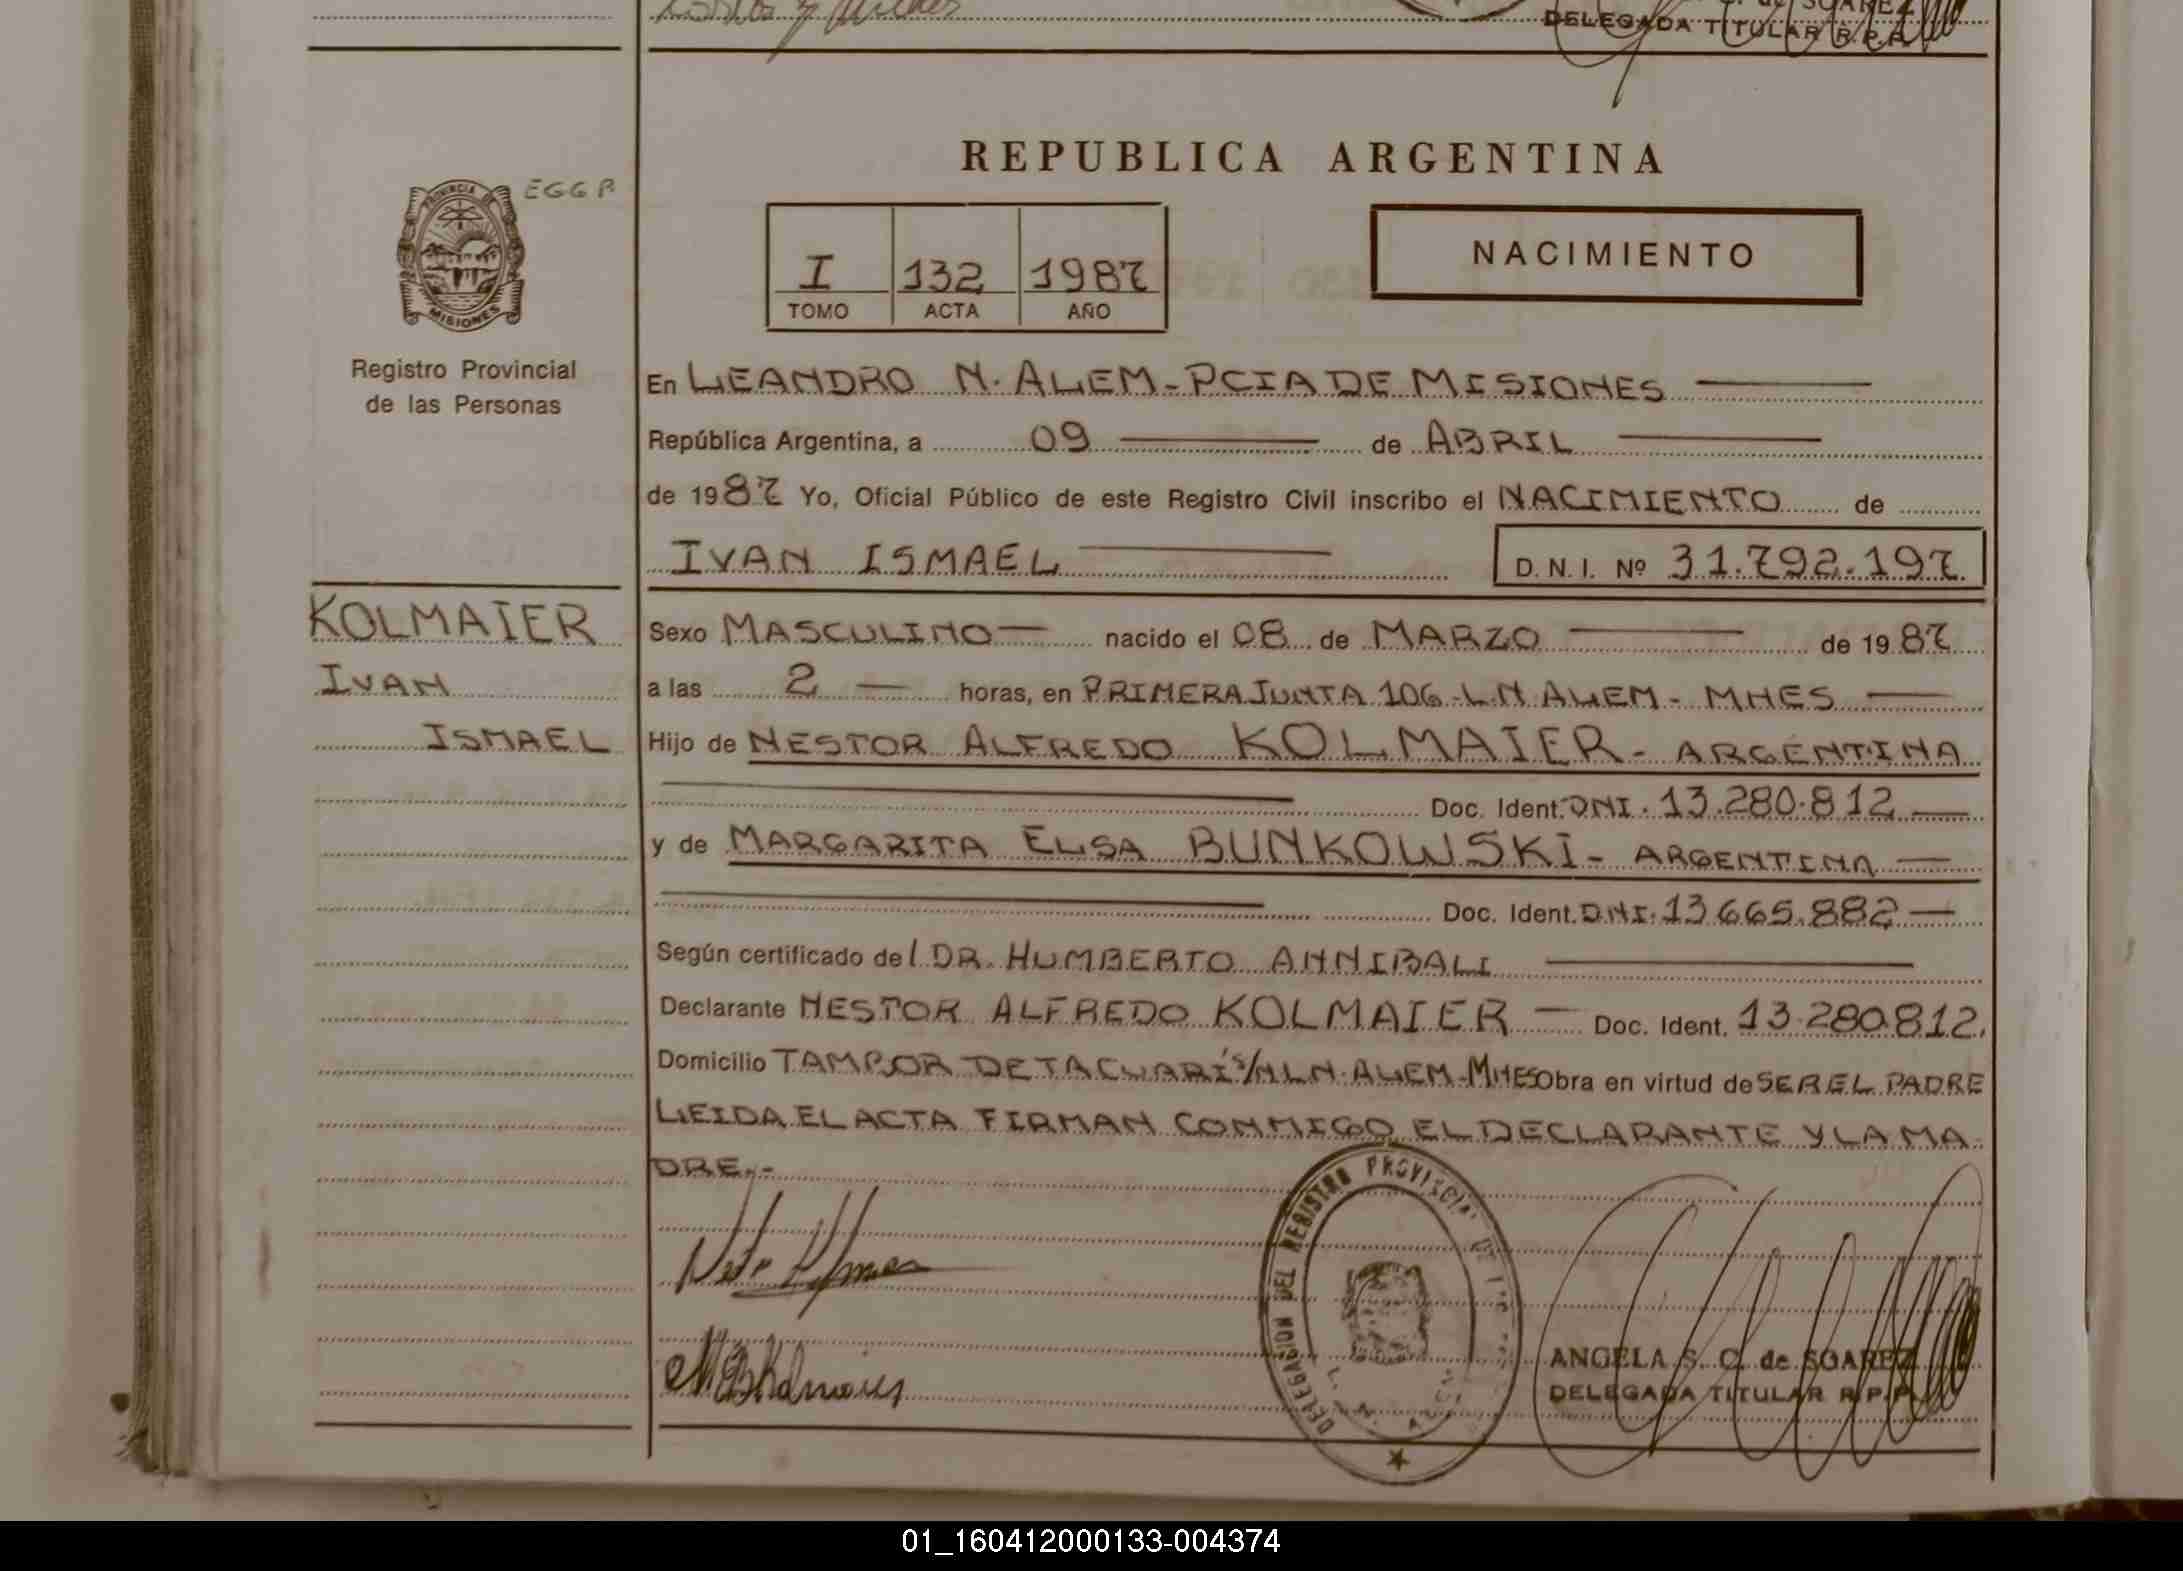 DE SOAREZ
DELEGADA TITULAR R.P.P.
REPUBLICA ARGENTINA
PROVINCIA DE
MISIONES
EGGP
I 132 1987
TOMO ACTA AÑO
NACIMIENTO
Registro Provincial
de las Personas
En LEANDRO N. ALEM - PCIA DE MISIONES
República Argentina, a 09 de ABRIL
de 1987 Yo, Oficial Público de este Registro Civil inscribo el NACIMIENTO de
IVAN ISMAEL D.N.I. Nº 31.792.197
KOLMAIER
IVAN
ISMAEL
Sexo MASCULINO nacido el 08 de MARZO de 1987
a las 2 horas, en PRIMERA JUNTA 106 - L.N. ALEM - MNES
Hijo de NESTOR ALFREDO KOLMAIER - ARGENTINA
Doc. Ident. DNI. 13.280.812
y de MARGARITA ELSA BUNKOWSKI - ARGENTINA
Doc. Ident. DNI. 13.665.882
Según certificado del DR. HUMBERTO ANNIBALI
Declarante NESTOR ALFREDO KOLMAIER Doc. Ident. 13.280.812.
Domicilio DE TACUARÍ S/N L.N. ALEM - MNES Obra en virtud de SER EL PADRE
LEIDA EL ACTA FIRMAN CONMIGO EL DECLARANTE Y LA MA
DRE.-
DELEGACION DEL REGISTRO PROVINCIAL DE
ANGELA S. C. de SOAREZ
DELEGADA TITULAR R.P.P.
01_160412000133-004374